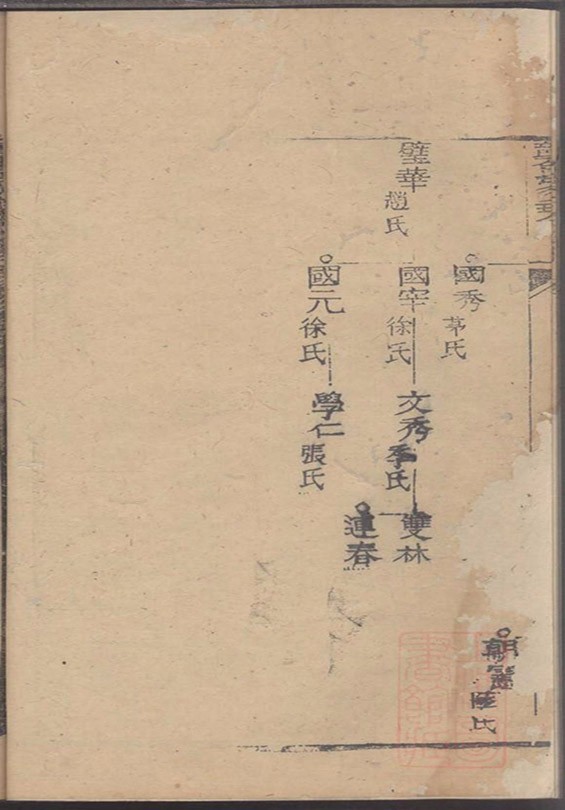 璧華 趙氏
國秀 茅氏
國宰 徐氏
國元 徐氏
文秀 季氏
學仁 張氏
雙林
連春
氏